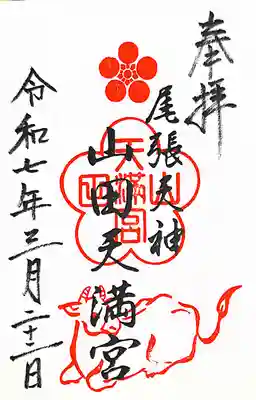 奉拝
尾張天神
山田天満宮
令和七年三月二十一日
山田天満宮